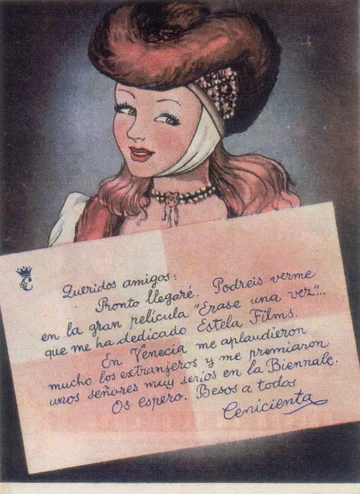 C
Queridos amigos:
Pronto llegaré. Podreis verme
en la gran película "Erase una vez"...
que me ha dedicado Estela Films.
En Venecia me aplaudieron
mucho los extranjeros y me premiaron
unos señores muy serios en la Biennale.
Os espero. Besos a todos
Cenicienta